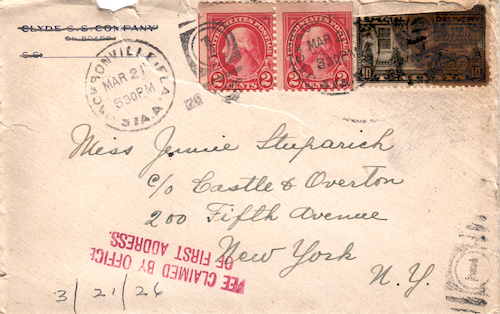 CLYDE S. S. COMPANY
ON BOARD
S.S.
JACKSONVILLE, FLA.
MAR 21
530PM
STA. A
UNITED STATES POSTAGE
2 CENTS 2
UNITED STATES POSTAGE
2 CENTS 2
MAR
530PM
SPECIAL DELIVERY
10 10
Miss Jennie Stuparich
c/o Castle & Overton
200 Fifth Avenue
New York
N.Y.
FEE CLAIMED BY OFFICE
OF FIRST ADDRESS.
3/21/26